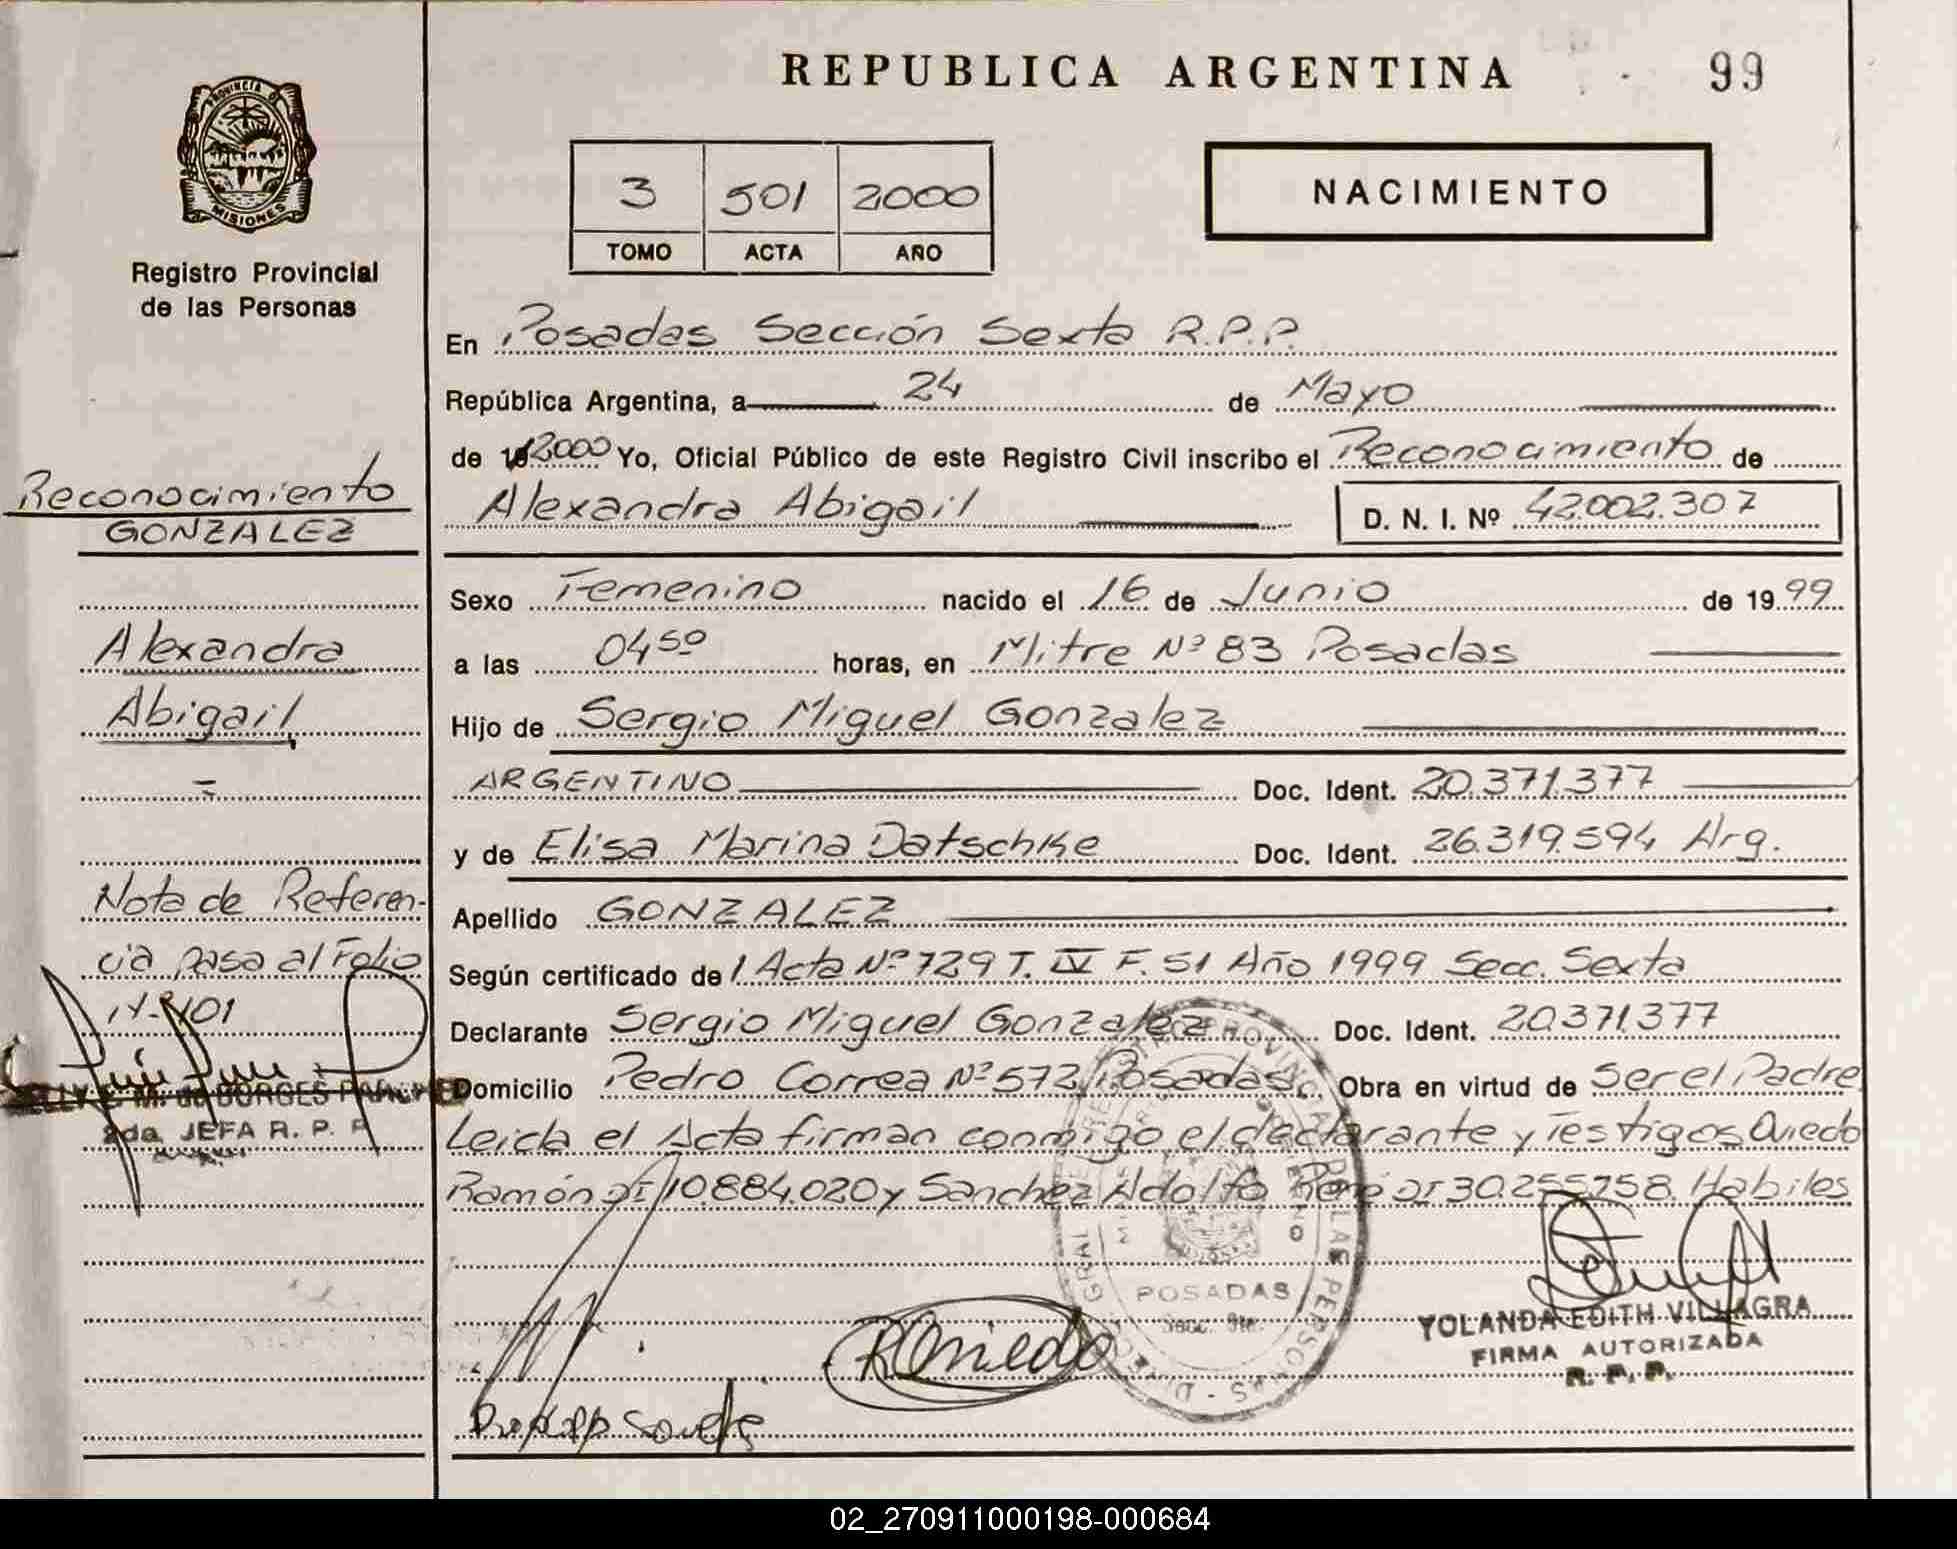 REPUBLICA ARGENTINA
99
PROVINCIA DE
MISIONES
Registro Provincial
de las Personas
3 501 2000
TOMO ACTA AÑO
NACIMIENTO
En Posadas Sección Sexta R.P.P.
República Argentina, a 24 de Mayo
de 2000 Yo, Oficial Público de este Registro Civil inscribo el Reconocimiento de
Alexandra Abigail D. N. I. Nº 42.002.307
Reconocimiento
GONZALEZ
Alexandra
Abigail
Sexo Femenino nacido el 16 de Junio de 1999
a las 04 50 horas, en Mitre Nº 83 Posadas
Hijo de Sergio Miguel Gonzalez
ARGENTINO Doc. Ident. 20.371.377
y de Elisa Marina Datschke Doc. Ident. 26.319.594 Arg.
Apellido GONZALEZ
Según certificado de Acta Nº 729 T. IV F. 51 Año 1999 Secc. Sexta
Declarante Sergio Miguel Gonzalez Doc. Ident. 20.371.377
Domicilio Pedro Correa Nº 572 Posadas. Obra en virtud de Ser el Padre
Leida el Acta firman conmigo el declarante y Testigos Oviedo
Ramón DI 10.884.020 y Sanchez Adolfo René DI 30.255758 Habiles
Nota de Referen-
cia pasa al Folio
101
M. de BORGES
2da. JEFA R. P. P.
POSADAS
Secc. 6ta.
ROviedo
YOLANDA EDITH VILLAGRA
FIRMA AUTORIZADA
R. P. P.
02_270911000198-000684